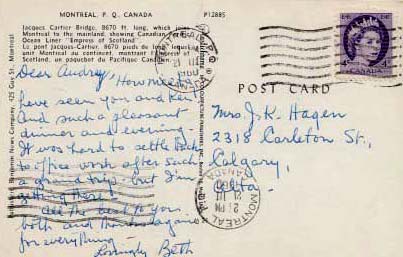 MONTREAL, P. Q. CANADA
P12885
Jacques Cartier Bridge, 8670 ft. long, which join
Montreal to the mainland, showing Canadian
Ocean Liner "Empress of Scotland"
Le pont Jacques-Cartier, 8670 pieds de long,
unit Montréal au continent, montrant
of Scotland, un paquebot du Pacifique Canadien
Dear Audrey, How nice to
have seen you and Ken
And such a pleasant
dinner and evening.
It was hard to settle back
to office work after such
a grand trip but I'm
getting there!
All the best to you
both and thanks again
for everything
Lovingly Beth
Benjamin News Company, 425 Guy St. Montreal
CANADA
POST CARD
Mrs J. K. Hagen
2318 Carleton St.,
Calgary,
Alta.
MONTREAL
PM
21
III
1960
CANADA